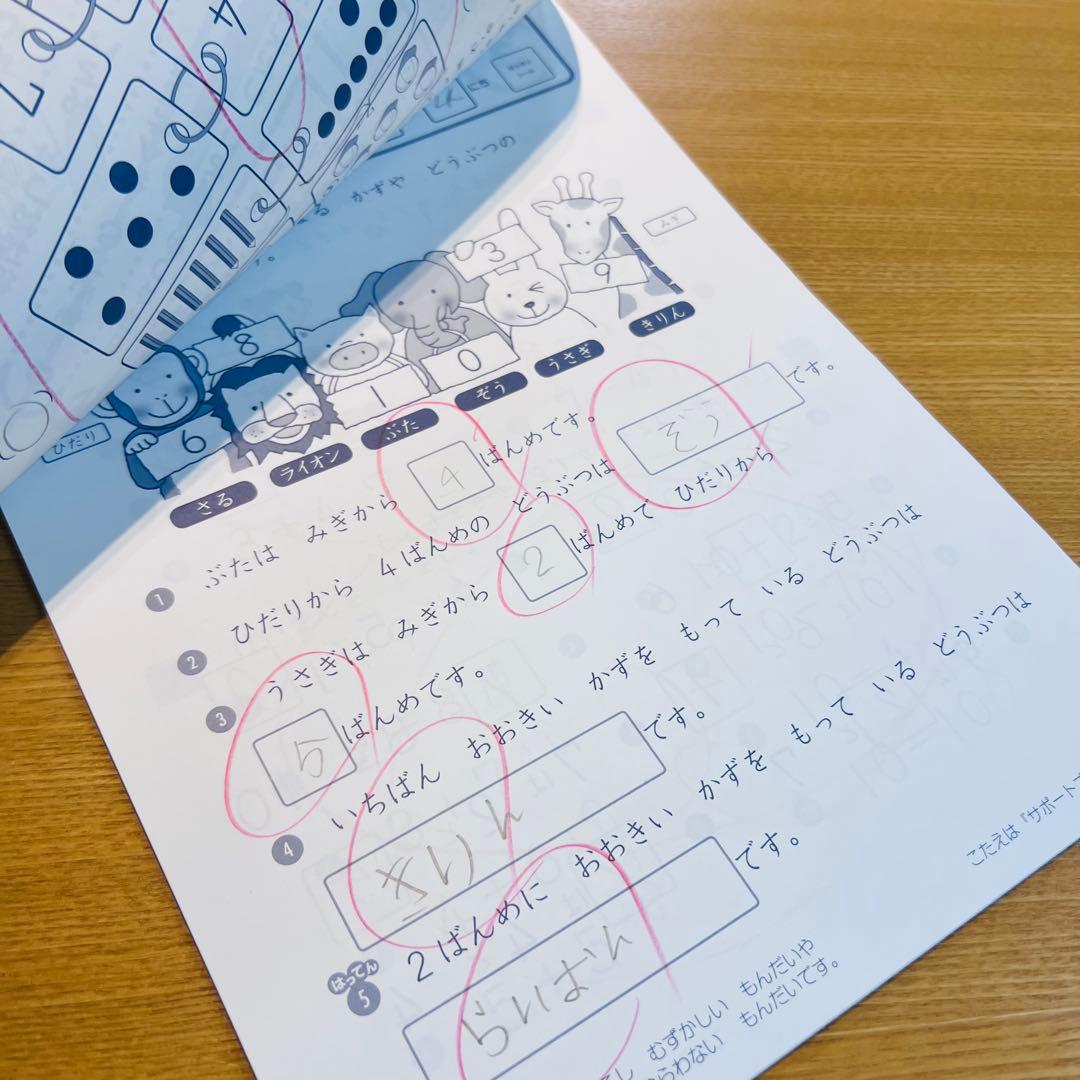 7
4
かずや どうぶつの
みぎ
3
9
8
0
1
6
ひだり
きりん
うさぎ
ぞう
ぶた
ライオン
さる
1 ぶたは みぎから 4 ばんめです。
2 ひだりから 4ばんめの どうぶつは ぞう です。
3 うさぎは みぎから 2 ばんめで ひだりから
5 ばんめです。
4 いちばん おおきい かずを もって いる どうぶつは
きりん です。
はってん
5 2ばんめに おおきい かずを もって いる どうぶつは
らいおん です。
こたえは『サポート
むずかしい もんだいや
らわない もんだいです。